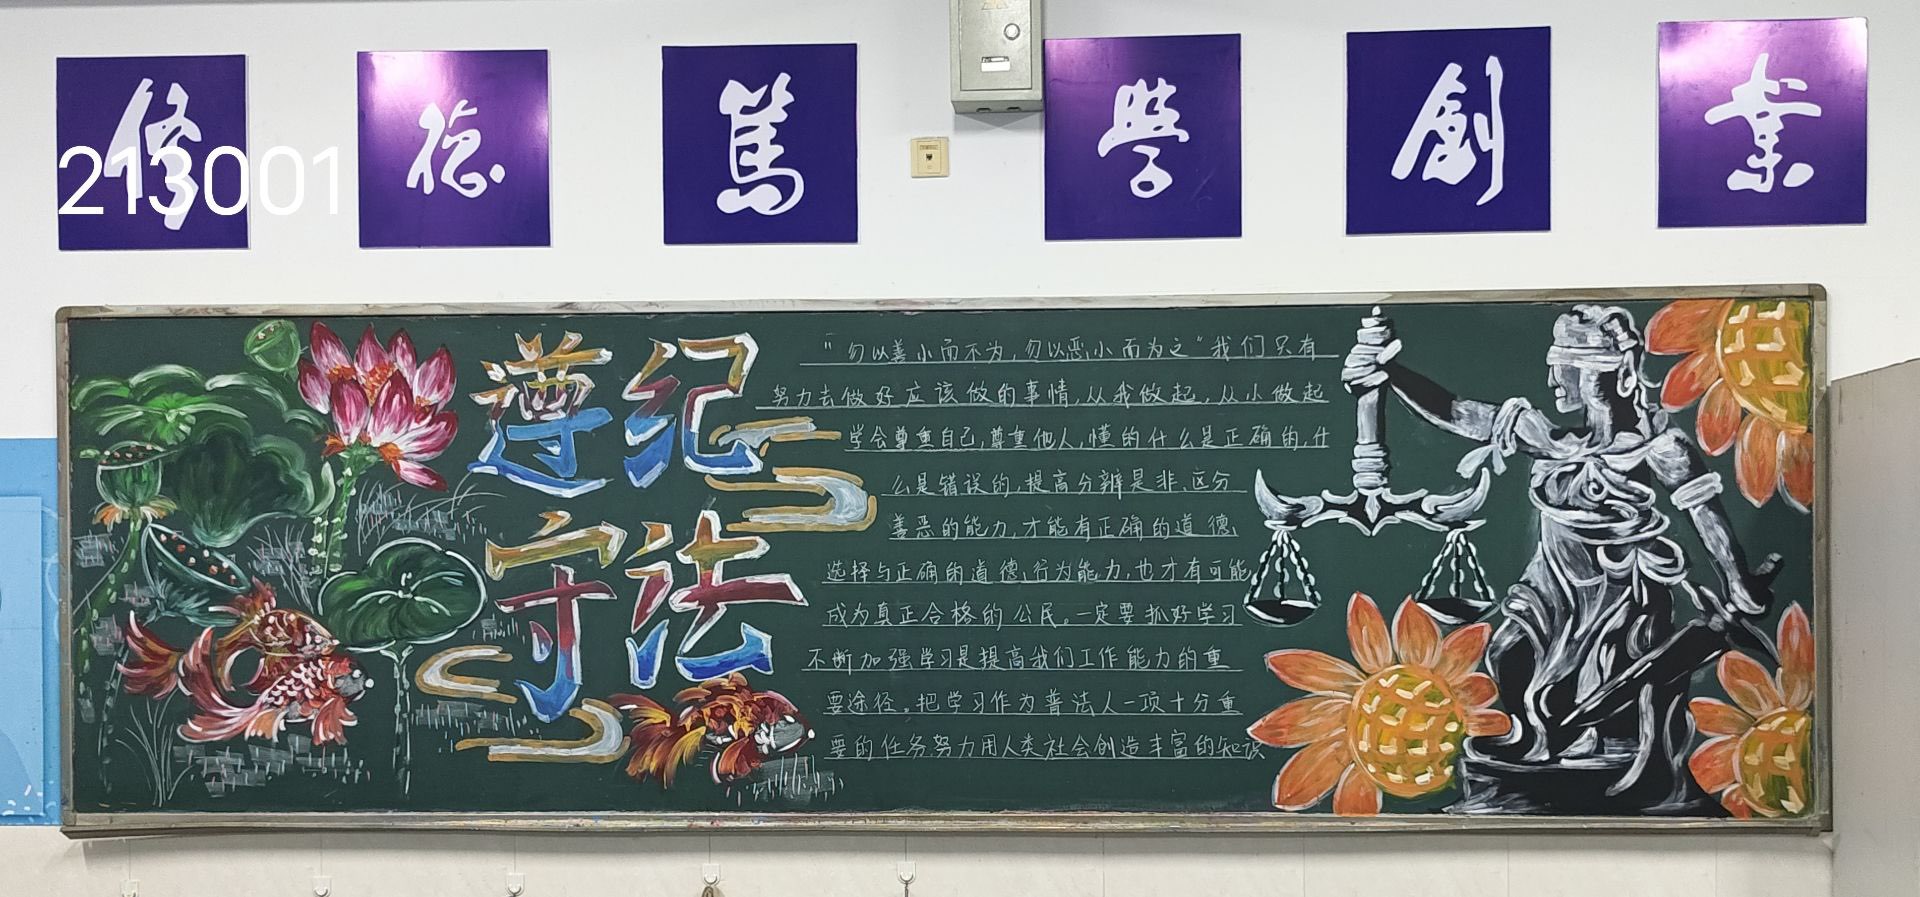 修 德 篤 學 創 業
213001
遵纪
守法
"勿以善小而不为,勿以恶小而为之"我们只有
努力去做好应该做的事情,从我做起,从小做起
学会尊重自己,尊重他人,懂的什么是正确的,什
么是错误的,提高分辨是非、区分
善恶的能力,才能有正确的道德
选择与正确的道德、行为能力,也才有可能
成为真正合格的公民。一定要抓好学习
不断加强学习是提高我们工作能力的重
要途径。把学习作为普法人一项十分重
要的任务努力用人类社会创造丰富的知识